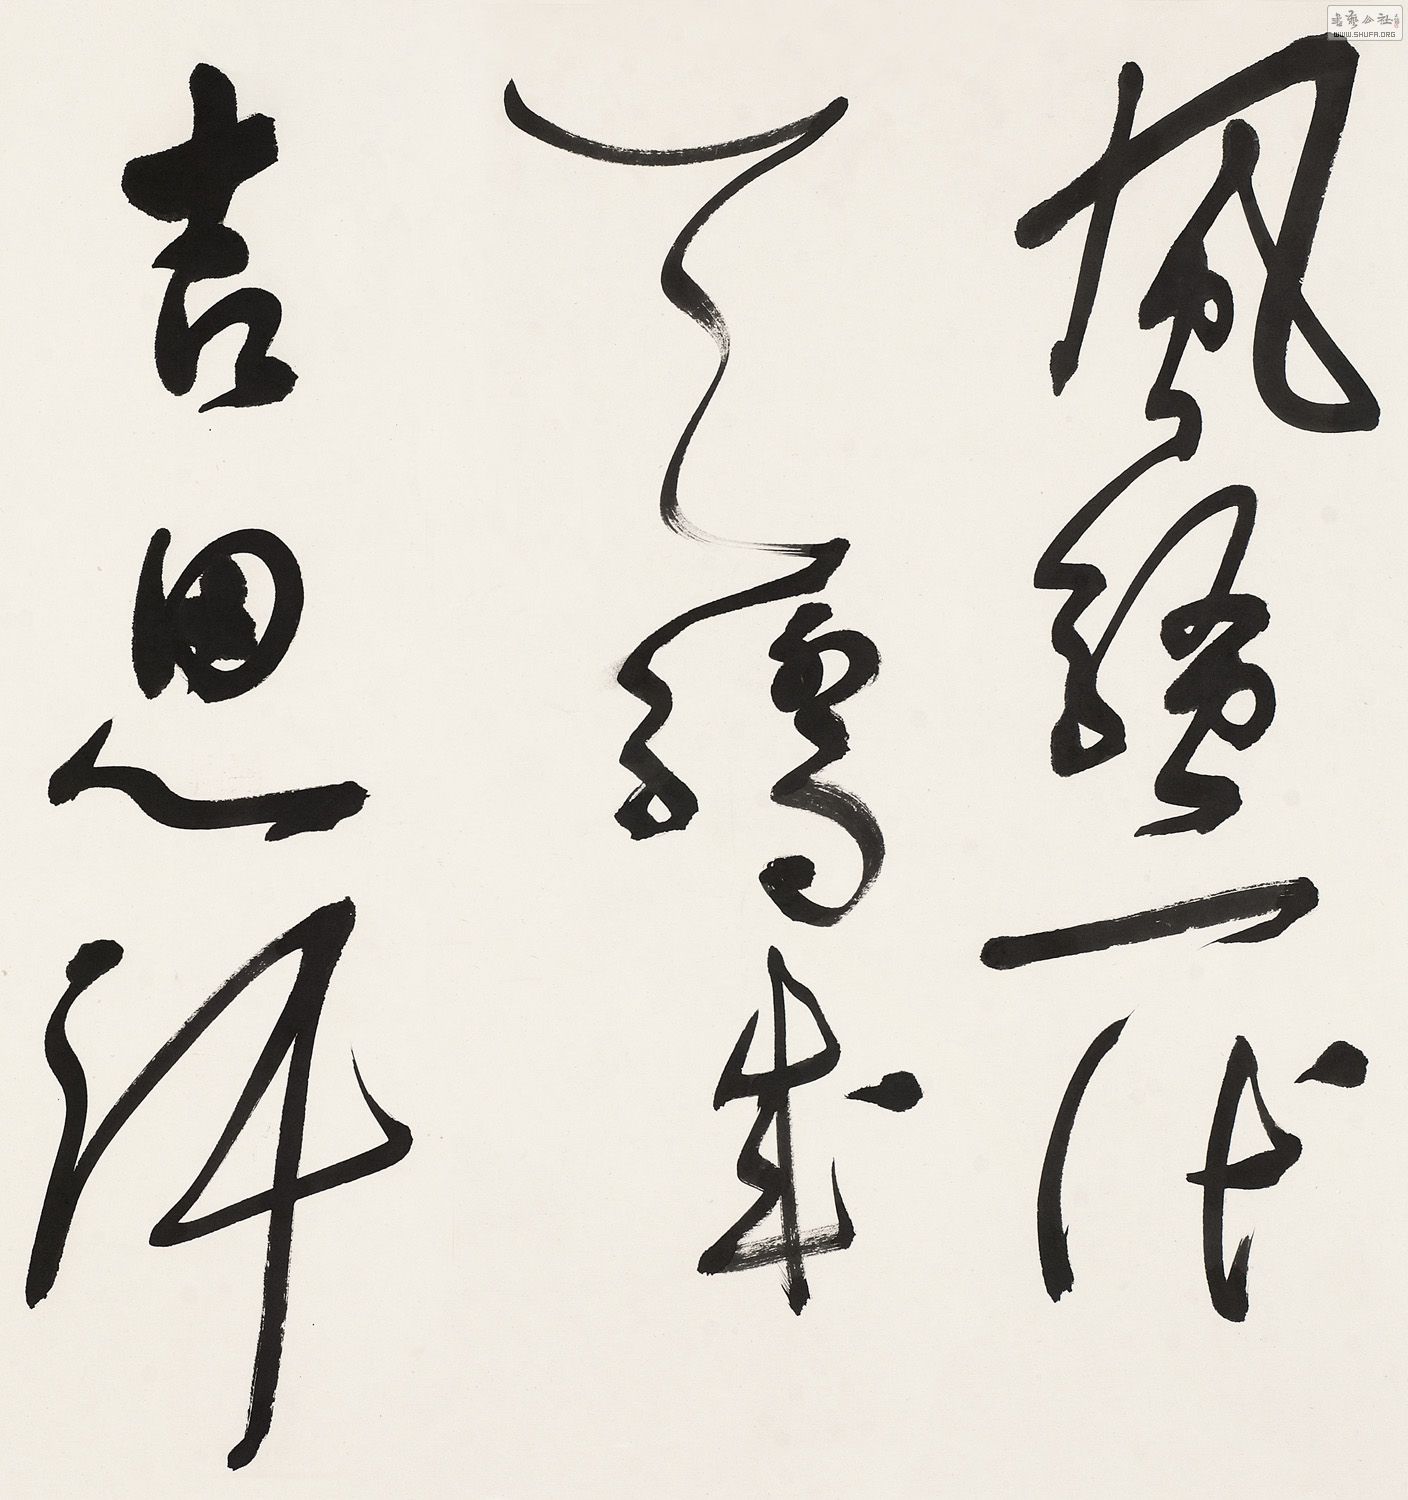 風騷一代
天驕成
吉思汗
書藝公社
WWW.SHUFA.ORG